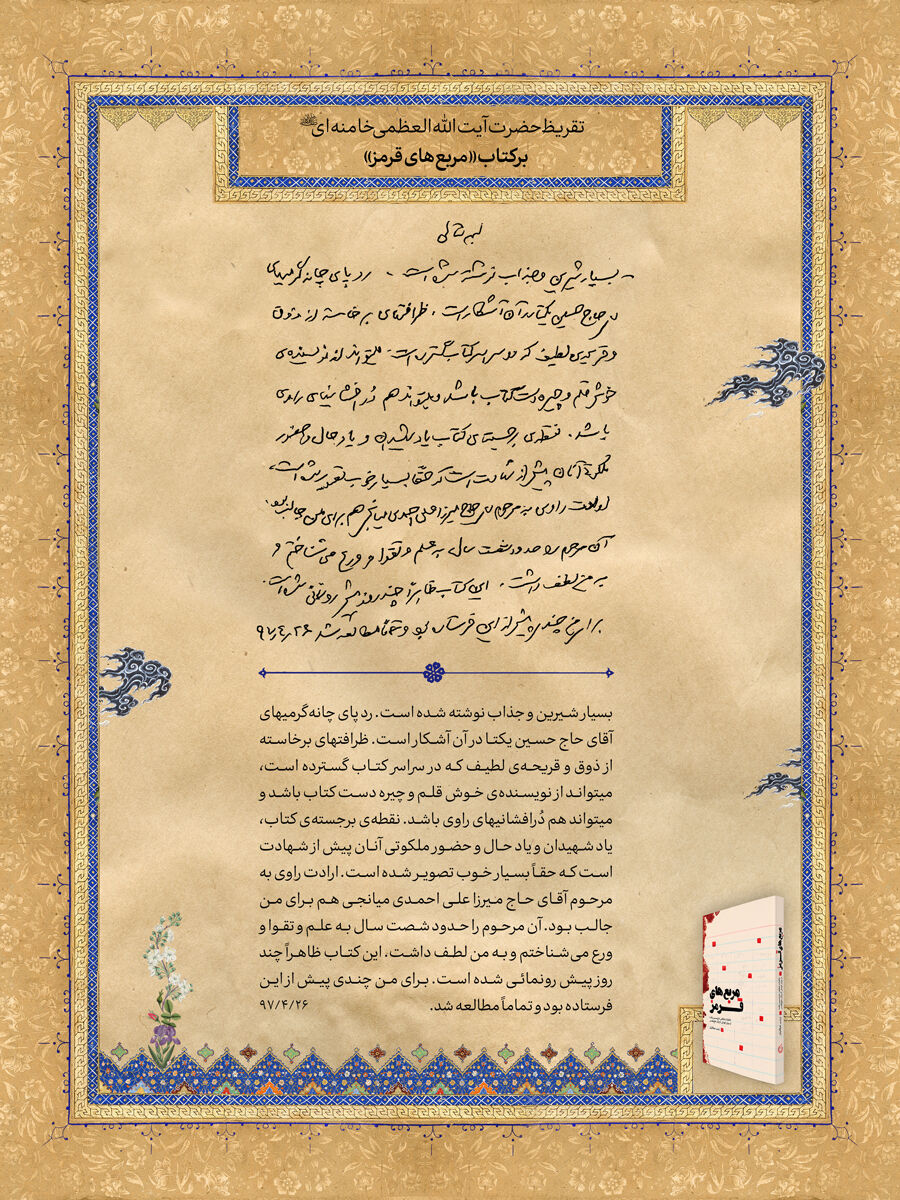 تقریظ حضرت آیت الله العظمی خامنه ای
بر کتاب «مربع های قرمز»
بسمه تعالی
- بسیار شیرین و جذاب نوشته شده است. رد پای چانه گرمیهای
حاج حسین یکتا در آن آشکار است. ظرافتهای برخاسته از ذوق
و قریحه‌ی لطیف که در سراسر کتاب گسترده است، میتواند از نویسنده‌ی
خوش قلم و چیره دست کتاب باشد و میتواند هم دُرافشانیهای راوی
باشد. نقطه‌ی برجسته‌ی کتاب یاد شهیدان و یاد حال و حضور
ملکوتی آنان پیش از شهادت است که حقّاً بسیار خوب تصویر شده است.
ارادت راوی به مرحوم آقای حاج میرزا علی احمدی میانجی هم برای من جالب بود.
آن مرحوم را حدود شصت سال به علم و تقوا و ورع می شناختم و
به من لطف داشت. این کتاب ظاهراً چند روز پیش رونمائی شده است.
برای من چندی پیش از این فرستاده بود و تماماً مطالعه شد. ۹۷،۴،۲۶
بسیار شیرین و جذاب نوشته شده است. رد پای چانه گرمیهای
آقای حاج حسین یکتا در آن آشکار است. ظرافتهای برخاسته
از ذوق و قریحه‌ی لطیف که در سراسر کتاب گسترده است،
میتواند از نویسنده‌ی خوش قلم و چیره دست کتاب باشد و
میتواند هم دُرافشانیهای راوی باشد. نقطه‌ی برجسته‌ی کتاب،
یاد شهیدان و یاد حال و حضور ملکوتی آنان پیش از شهادت
است که حقاً بسیار خوب تصویر شده است. ارادت راوی به
مرحوم آقای حاج میرزا علی احمدی میانجی هم برای من
جالب بود. آن مرحوم را حدود شصت سال به علم و تقوا و
ورع می شناختم و به من لطف داشت. این کتاب ظاهراً چند
روز پیش رونمائی شده است. برای من چندی پیش از این
فرستاده بود و تماماً مطالعه شد. ۹۷/۴/۲۶
مربع های
قرمز
مربع های قرمز